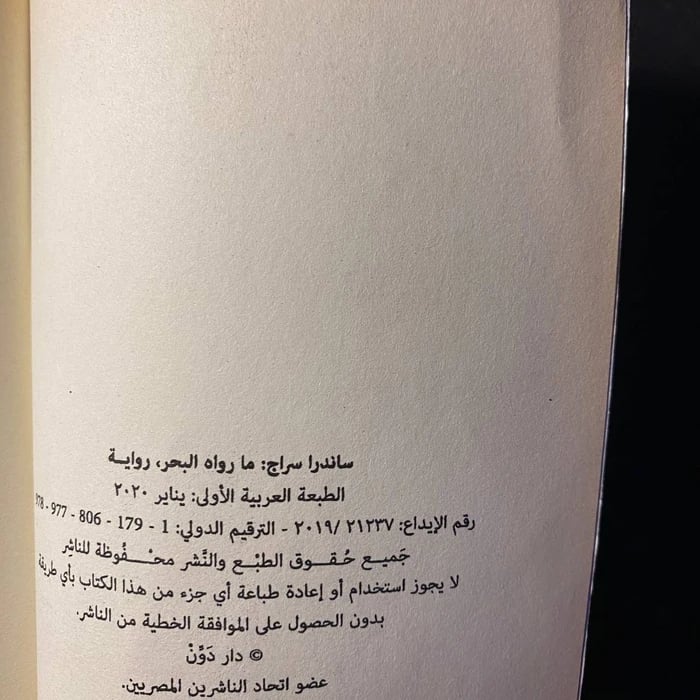 ساندرا سراج: ما رواه البحر، روايــة
الطبعة العربية الأولى: يناير ٢٠٢٠
رقم الإيداع: ٢١٢٣٧ /٢٠١٩ - الترقيم الدولي: 1 - 179 - 806 - 977 - 978
جَميـع حُـقــوق الطبْـع والنَّشر محـْـفُـوظة للناشِر
لا يجوز استخدام أو إعادة طباعة أي جزء من هذا الكتاب بأي طريقة
بدون الحصول على الموافقة الخطية من الناشر.
© دار دَوِّنْ
عضو اتحاد الناشرين المصريين.